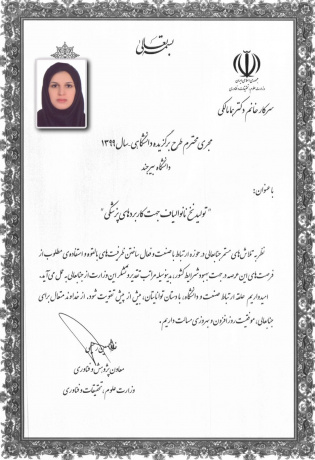 بسمه تعالی
جمهوری اسلامی ایران
وزارت علوم، تحقیقات و فناوری
سرکار خانم دکتر هما مالکی
مجری محترم طرح برگزیده دانشگاهی -سال ۱۳۹۹
دانشگاه بیرجند
با عنوان:
"تولید نخ نانوالیاف جهت کاربردهای پزشکی"
نظر به تلاش های مستمر جنابعالی در حوزه ارتباط با صنعت و فعال ساختن ظرفیت های بالقوه و استفاده ی مطلوب از
فرصت های این عرصه در جهت بهبود شرایط کشور، بدینوسیله مراتب تقدیر و تشکر این وزارت از جنابعالی به عمل می آید.
امید داریم حلقه ارتباط صنعت و دانشگاه، با دستان توانایتان، بیش از پیش تقویت شود. از خداوند متعال برای
جنابعالی، موفقیت روزافزون و بهروزی مسالت داریم.
معاون پژوهش و فناوری
وزارت علوم، تحقیقات و فناوری